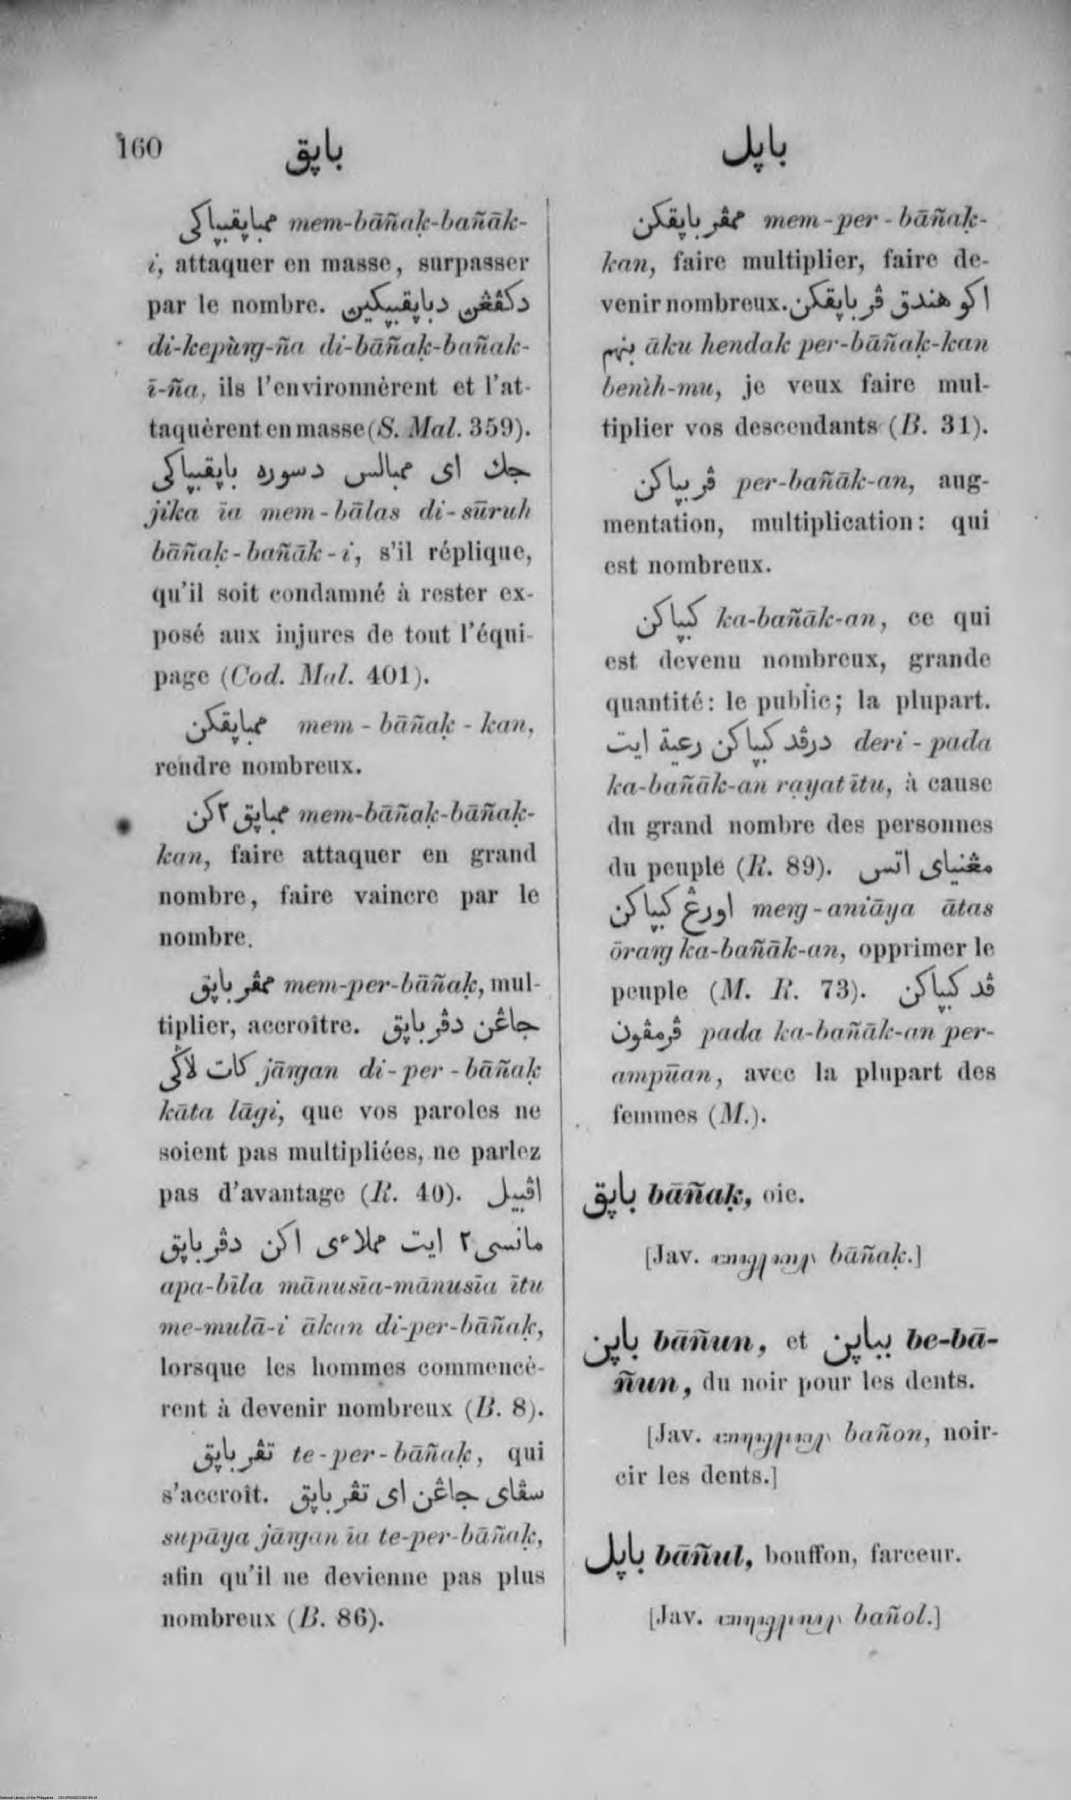 160 باڽق باڽل
ممباڽقبڽاكي mem-bāñaḳ-bañāk-
i, attaquer en masse, surpasser
par le nombre. دكڤڠن دباڽقبڽكين
di-kepùṅg-ña di-bāñaḳ-bañak-
ī-ña, ils l'environnèrent et l'at-
taquèrent en masse (S. Mal. 359).
جك اي ممبالس دسوره باڽقبڽاكي
jika īa mem-bālas di-sūruh
bāñaḳ-bañāk-i, s'il réplique,
qu'il soit condamné à rester ex-
posé aux injures de tout l'équi-
page (Cod. Mal. 401).
ممباڽقكن mem-bāñaḳ-kan,
rendre nombreux.
ممباڽق٢كن mem-bāñaḳ-bāñaḳ-
kan, faire attaquer en grand
nombre, faire vaincre par le
nombre.
ممڤرباڽق mem-per-bāñaḳ, mul-
tiplier, accroître. جاڠن دڤرباڽق
كات لاڬي jāṅgan di-per-bāñaḳ
kāta lāgi, que vos paroles ne
soient pas multipliées, ne parlez
pas d'avantage (R. 40). اڤبيل
مانسي٢ ايت مملاءي اكن دڤرباڽق
apa-bīla mānusīa-mānusīa ītu
me-mulā-i ākan di-per-bāñaḳ,
lorsque les hommes commencè-
rent à devenir nombreux (B. 8).
تڤرباڽق te-per-bāñaḳ, qui
s'accroît. سڤاي جاڠن اي تڤرباڽق
supāya jāṅgan īa te-per-bāñaḳ,
afin qu'il ne devienne pas plus
nombreux (B. 86).
ممڤرباڽقكن mem-per-bāñaḳ-
kan, faire multiplier, faire de-
venir nombreux. اكو هندق ڤرباڽقكن
بنهم āku hendak per-bāñaḳ-kan
benìh-mu, je veux faire mul-
tiplier vos descendants (B. 31).
ڤربڽاكن per-bañāk-an, aug-
mentation, multiplication: qui
est nombreux.
كبڽاكن ka-bañāk-an, ce qui
est devenu nombreux, grande
quantité: le public; la plupart.
درڤد كبڽاكن رعية ايت deri-pada
ka-bañāk-an rayat ītu, à cause
du grand nombre des personnes
du peuple (R. 89). مڠنياي اتس
اورڠ كبڽاكن meṅg-aniāya ātas
ōraṅg ka-bañāk-an, opprimer le
peuple (M. R. 73). ڤد كبڽاكن
ڤرمڤون pada ka-bañāk-an per-
ampūan, avec la plupart des
femmes (M.).
باڽق bāñaḳ, oie.
[Jav. bāñaḳ.]
باڽن bāñun, et بباڽن be-bā-
ñun, du noir pour les dents.
[Jav. bañon, noir-
cir les dents.]
باڽل bāñul, bouffon, farceur.
[Jav. bañol.]